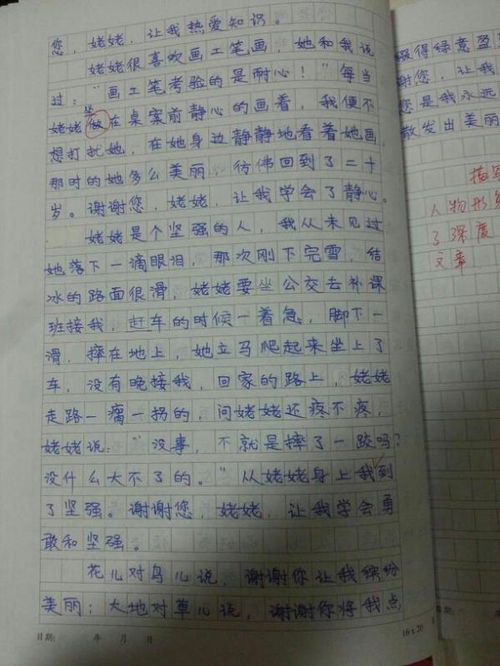 您，姥姥，让我热爱知识。
姥姥很喜欢画工笔画，她和我说
过："画工笔考验的是耐心！"每当
坐
姥姥做在桌案前静心的画着，我便不
想打扰她，在她身边静静地看着她画，
那时的她多么美丽，彷佛回到了二十
岁。谢谢您，姥姥，让我学会了静心。
姥姥是个坚强的人，我从未见过
她落下一滴眼泪，那次刚下完雪，结
冰的路面很滑，姥姥要坐公交去补课
班接我，赶车的时候一着急，脚下一
滑，摔在地上，她立马爬起来坐上了
车，没有晚接我，回家的路上，姥姥
走路一瘸一拐的，问姥姥还疼不疼，
姥姥说："没事，不就是摔了一跤吗？
没什么大不了的。"从姥姥身上我到
了坚强。谢谢您，姥姥，让我学会勇
敢和坚强。
花儿对鸟儿说，谢谢你让我缤纷
美丽；大地对草儿说，谢谢你将我点
日期： 年 月 日
16×20
缀得绿意盈
谢您，让我
您是我永远
散发出美丽
描写
人物形象
了深度
文章